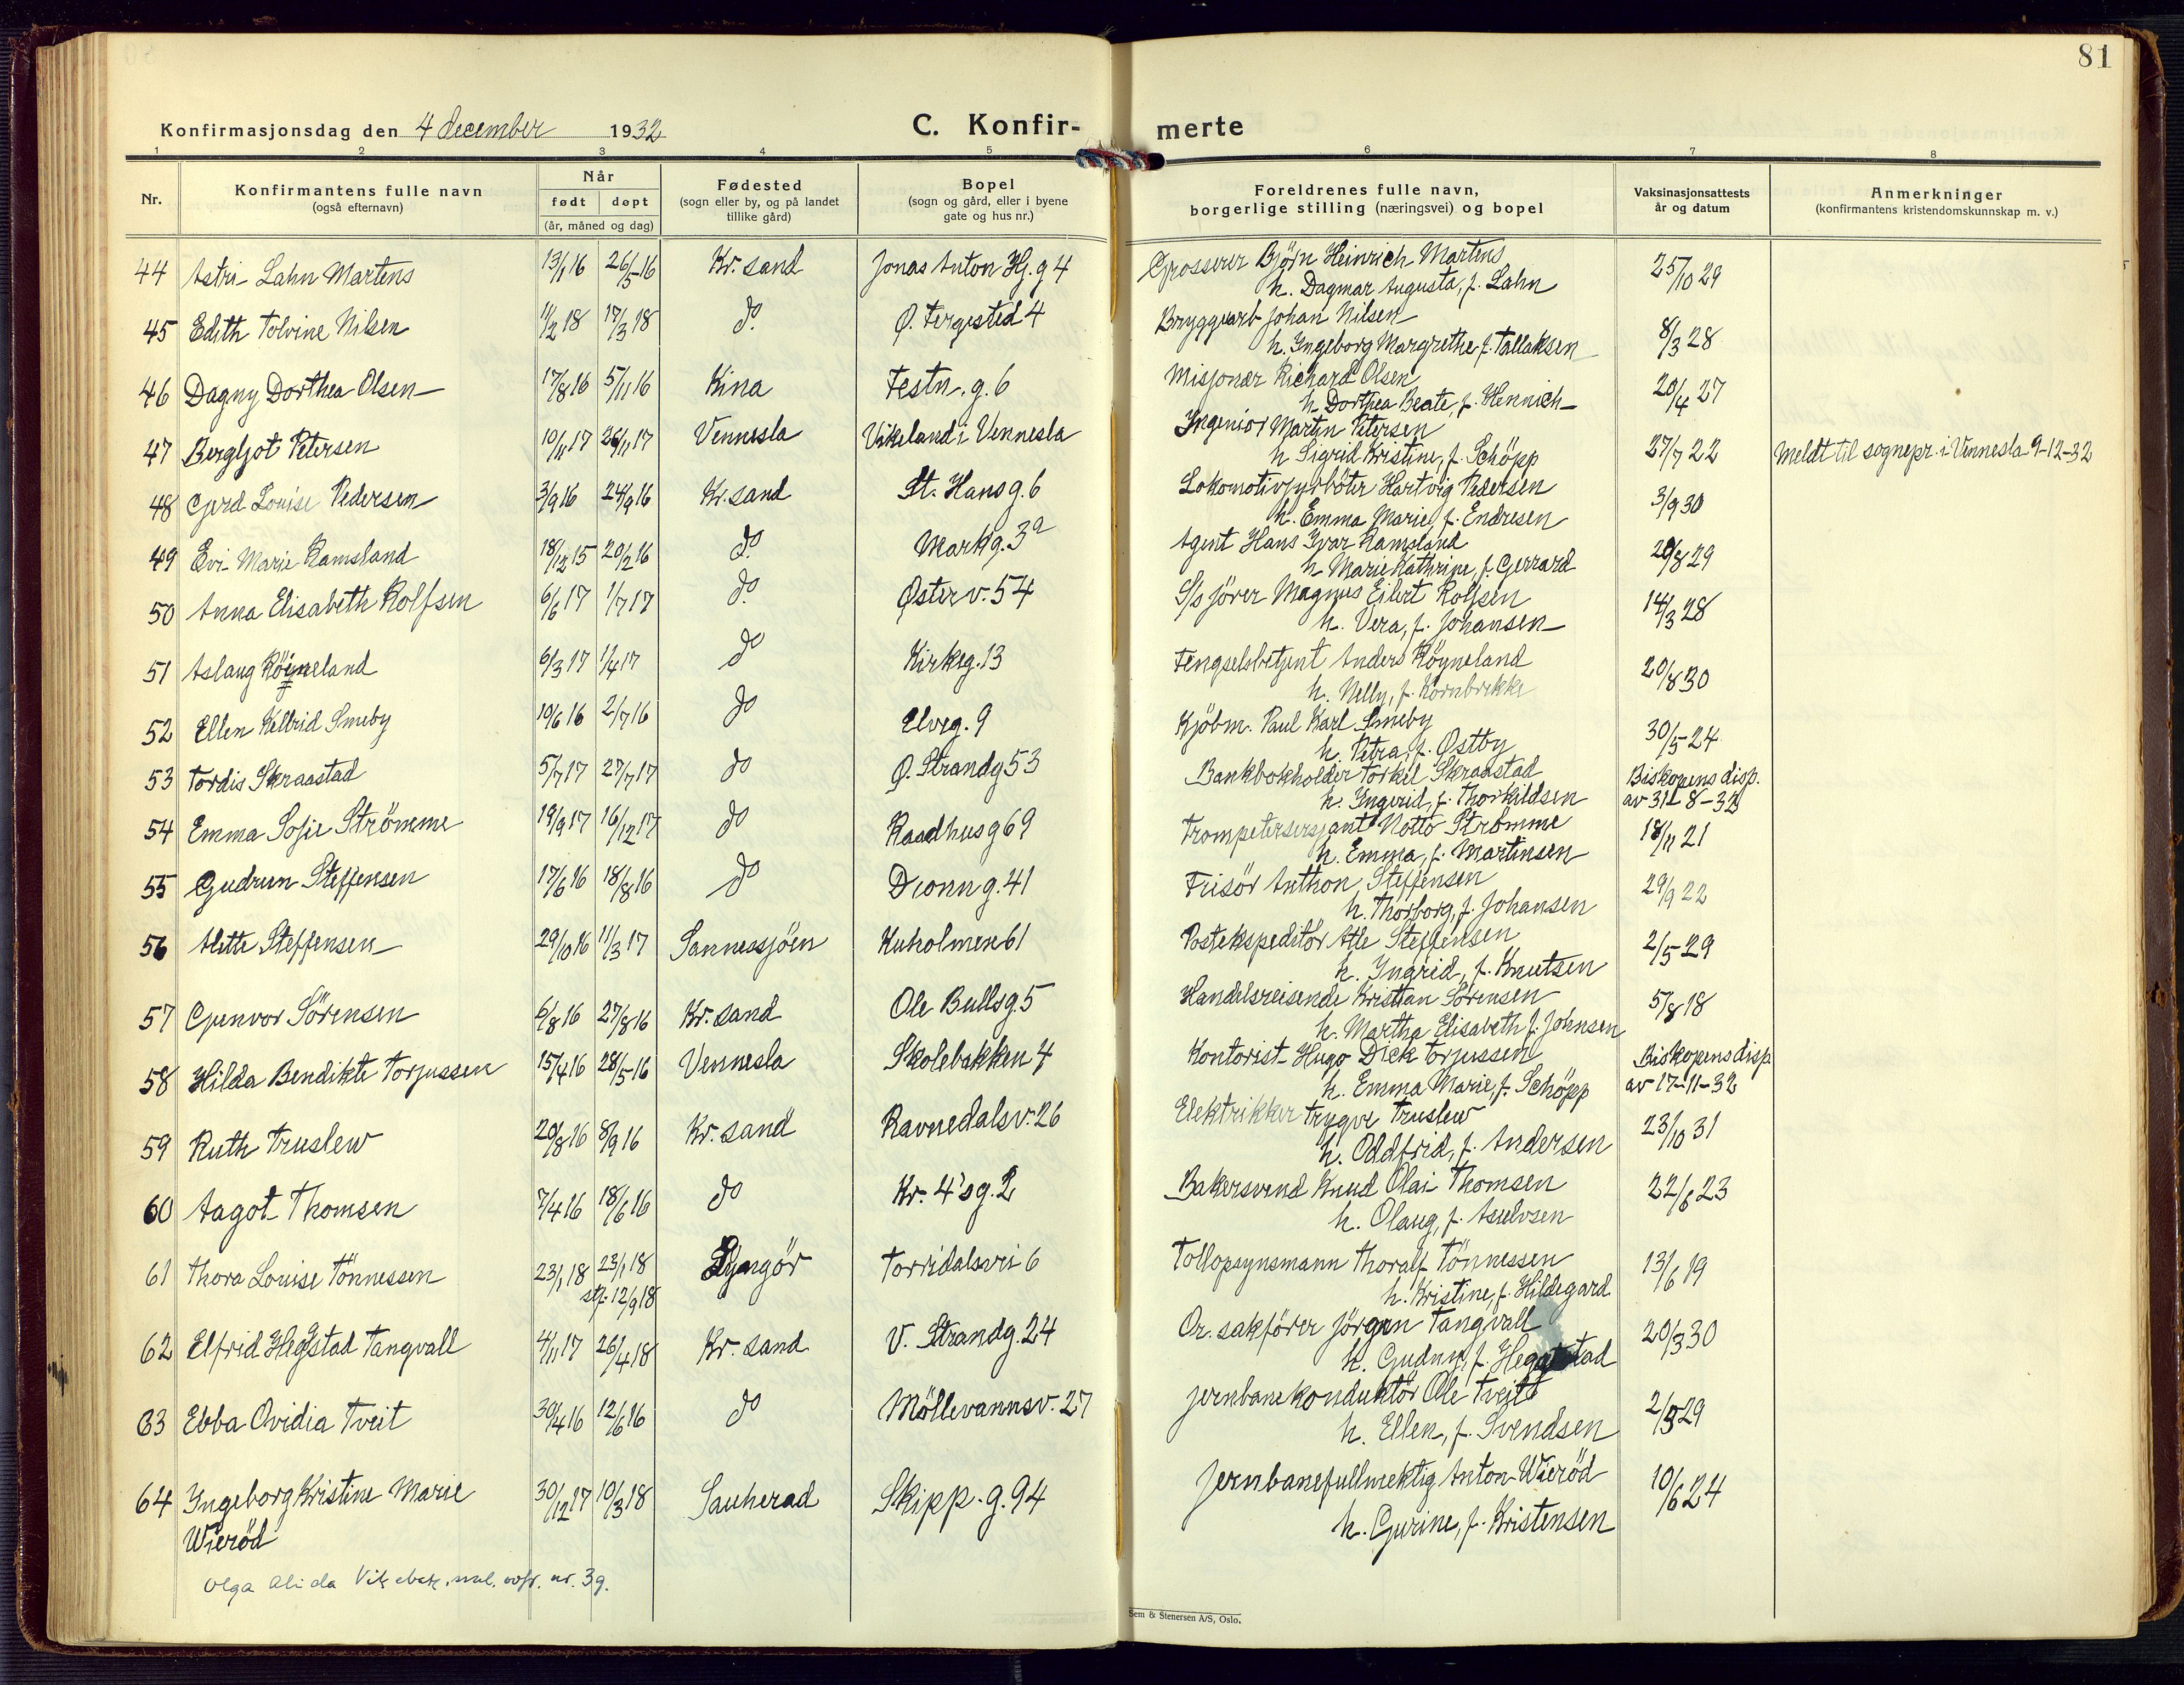 81
Konfirmasjonsdag den 4 december 1932 C. Konfir- merte
1 2 3 4 5 6 7 8
Nr. Konfirmantens fulle navn (også efternavn) Når født døpt (år, måned og dag) Fødested (sogn eller by, og på landet tillike gård) Bopel (sogn og gård, eller i byene gate og hus nr.) Foreldrenes fulle navn, borgerlige stilling (næringsvei) og bopel Vaksinasjonsattests år og datum Anmerkninger (konfirmantens kristendomskunnskap m. v.)
44 Astri Lahn Martens 13/1 16 26/5 16 Kr.sand Jonas Anton Hj. g 4 Grosserer Björn Heinrich Martens 25/10 29
h. Dagmar Augusta, f. Lahn
45 Edith Tolvine Nilsen 11/2 18 17/3 18 do Ø. Fergested 4 Bryggearb Johan Nilsen 8/3 28
h. Ingeborg Margrethe f. Tallaksen
46 Dagny Dorthea Olsen 17/8 16 5/11 16 Kina Festn. g. 6 Misjonær Richard Olsen 20/4 27
h. Dorthea Beate, f. Hennich
47 Bergljot Petersen 10/11 17 26/11 17 Vennesla Vikeland i Vennesla Ingeniør Martin Petersen 27/7 22 Meldt til sognepr. i Vennesla 9-12-32
h Sigrid Kristine, f. Schöpp
48 Gerd Louise Pedersen 3/9 16 24/9 16 Kr.sand St. Hans g. 6 Lokomotivfyrböter Hartvig Pedersen 3/9 30
h. Emma Marie, f. Endresen
49 Evi Marie Ramsland 18/12 15 20/2 16 do Markg. 3a Agent Hans Ivar Ramsland 29/8 29
h. Marie Kathrine, f. Gerrard
50 Anna Elisabeth Rolfsen 6/6 17 1/7 17 do Østerv. 54 S/s förer Magnus Eilert Rolfsen 14/3 28
h. Vera, f. Johansen
51 Aslaug Röyneland 6/3 17 1/4 17 do Kirkeg. 13 Fengselsbetjent Anders Röyneland 20/8 30
h. Nelly, f. Kornbrekke
52 Ellen Kellrid Smeby 10/6 16 2/7 16 do Elveg. 9 Kjöbm. Paul Karl Smeby 30/5 24
h. Petra, f. Østby
53 Tordis Skraastad 5/7 17 27/7 17 do Ø. Strandg 53 Bankbokholder Torkil Skraastad Biskopens disp. av 31-8-32
h. Ingerid, f. Thorkildsen
54 Emma Sofie Strömme 19/9 17 16/12 17 do Raadhusg 69 Trompetersersjant Notto Strömme 18/11 21
h. Emma, f. Martinsen
55 Gudrun Steffensen 17/6 16 18/8 16 do Dronn g. 41 Frisör Anthon Steffensen 29/9 22
h. Thorborg, f. Johansen
56 Mette Steffensen 29/10 16 11/3 17 Sannessjöen Kuholmen 61 Postekspeditör Atle Steffensen 2/5 29
h. Ingrid, f. Knutsen
57 Gunvor Sörensen 6/8 16 27/8 16 Kr.sand Ole Bullsg. 5 Handelsreisende Kristian Sörensen 5/8 18
h. Martha Elisabeth f. Johnsen
58 Hilda Bendikte Torjussen 15/4 16 28/5 16 Vennesla Skolebakken 4 Kontorist Hugo Dick Torjussen Biskopens disp av 17-11-32
h. Emma Marie, f. Schöpp
59 Ruth Truslew 20/8 16 8/9 16 Kr.sand Ravnedalsv. 26 Elektrikker Trygve Truslew 23/10 31
h. Oddfrid, f. Andersen
60 Aagot Thomsen 7/4 16 18/6 16 do Kr. 4's g. 2 Bakersvend Knud Olai Thomsen 22/6 23
h. Olaug, f. Asulvsen
61 Thora Louise Tönnessen 23/1 18 23/1 18 Lyngör Torridalsvei 6 Tollopsynsmann Thoralf Tönnessen 13/6 19
stf. 12/9 18 h. Kristine, f. Hildegard
62 Elfrid Hegstad Tangvall 4/11 17 26/4 18 Kr.sand V. Strandg. 24 Or. sakförer Jörgen Tangvall 20/3 30
h. Gudny, f. Hegstad
63 Ebba Ovidia Tveit 30/4 16 12/6 16 do Möllevannsv. 27 Jernbanekonduktör Ole Tveitt 2/5 29
h. Ellen, f. Svendsen
64 Ingeborg Kristine Marie 30/12 17 10/3 18 Sauherad Skipp. g. 94 Jernbanefullmektig Anton Wieröd 10/6 24
Wieröd h. Gurine, f. Kristensen
Olga Alida nr. 39.
Sem & Stenersen A/S, Oslo.